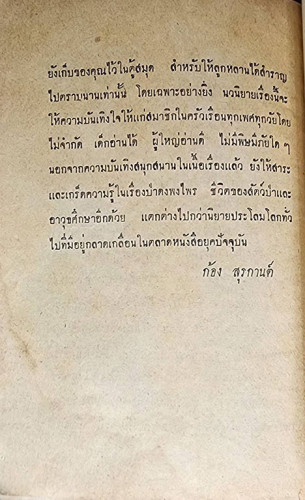 ยังเก็บของคุณไว้ในตู้สมุด สำหรับให้ลูกหลานได้สำราญ
ไปตราบนานเท่านั้น โดยเฉพาะอย่างยิ่ง นวนิยายเรื่องนี้จะ
ให้ความบันเทิงใจให้แก่สมาชิกในครัวเรือนทุกเพศทุกวัยโดย
ไม่จำกัด เด็กอ่านได้ ผู้ใหญ่อ่านดี ไม่มีพิษมีภัยใด ๆ
นอกจากความบันเทิงสนุกสนานในเนื้อเรื่องแล้ว ยังให้สาระ
และเกร็ดความรู้ในเรื่องป่าดงพงไพร ชีวิตของสัตว์ป่าและ
อาวุธศึกษาอีกด้วย แตกต่างไปกว่านิยายประโลมโลกทั่ว
ไปที่มีอยู่กลาดเกลื่อนในตลาดหนังสือยุคปัจจุบัน
ก้อง สุรกานต์